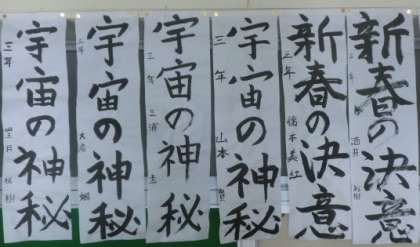 新春の決意
三年 酒井
新春の決意
三年 橋本美紅
宇宙の神秘
三年 山本
宇宙の神秘
三年 三浦
宇宙の神秘
三年
宇宙の神秘
三年